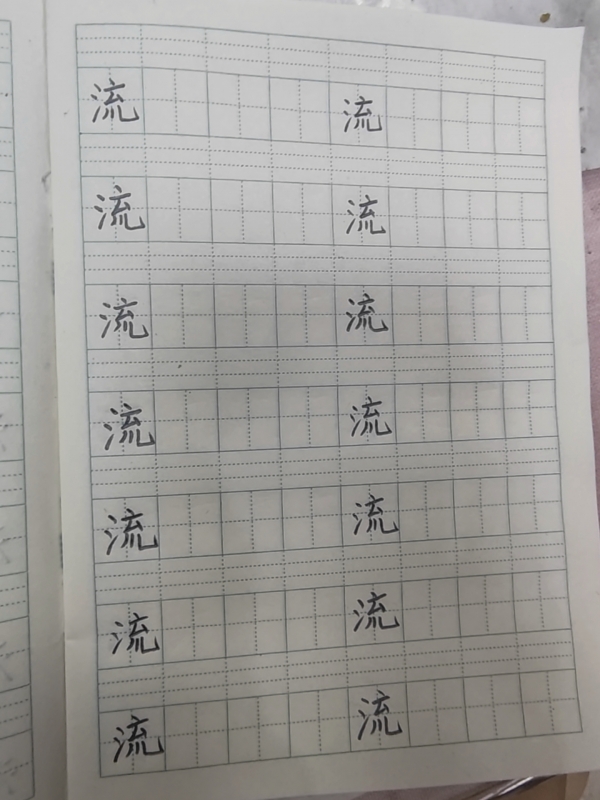 流 流
流 流
流 流
流 流
流 流
流 流
流 流